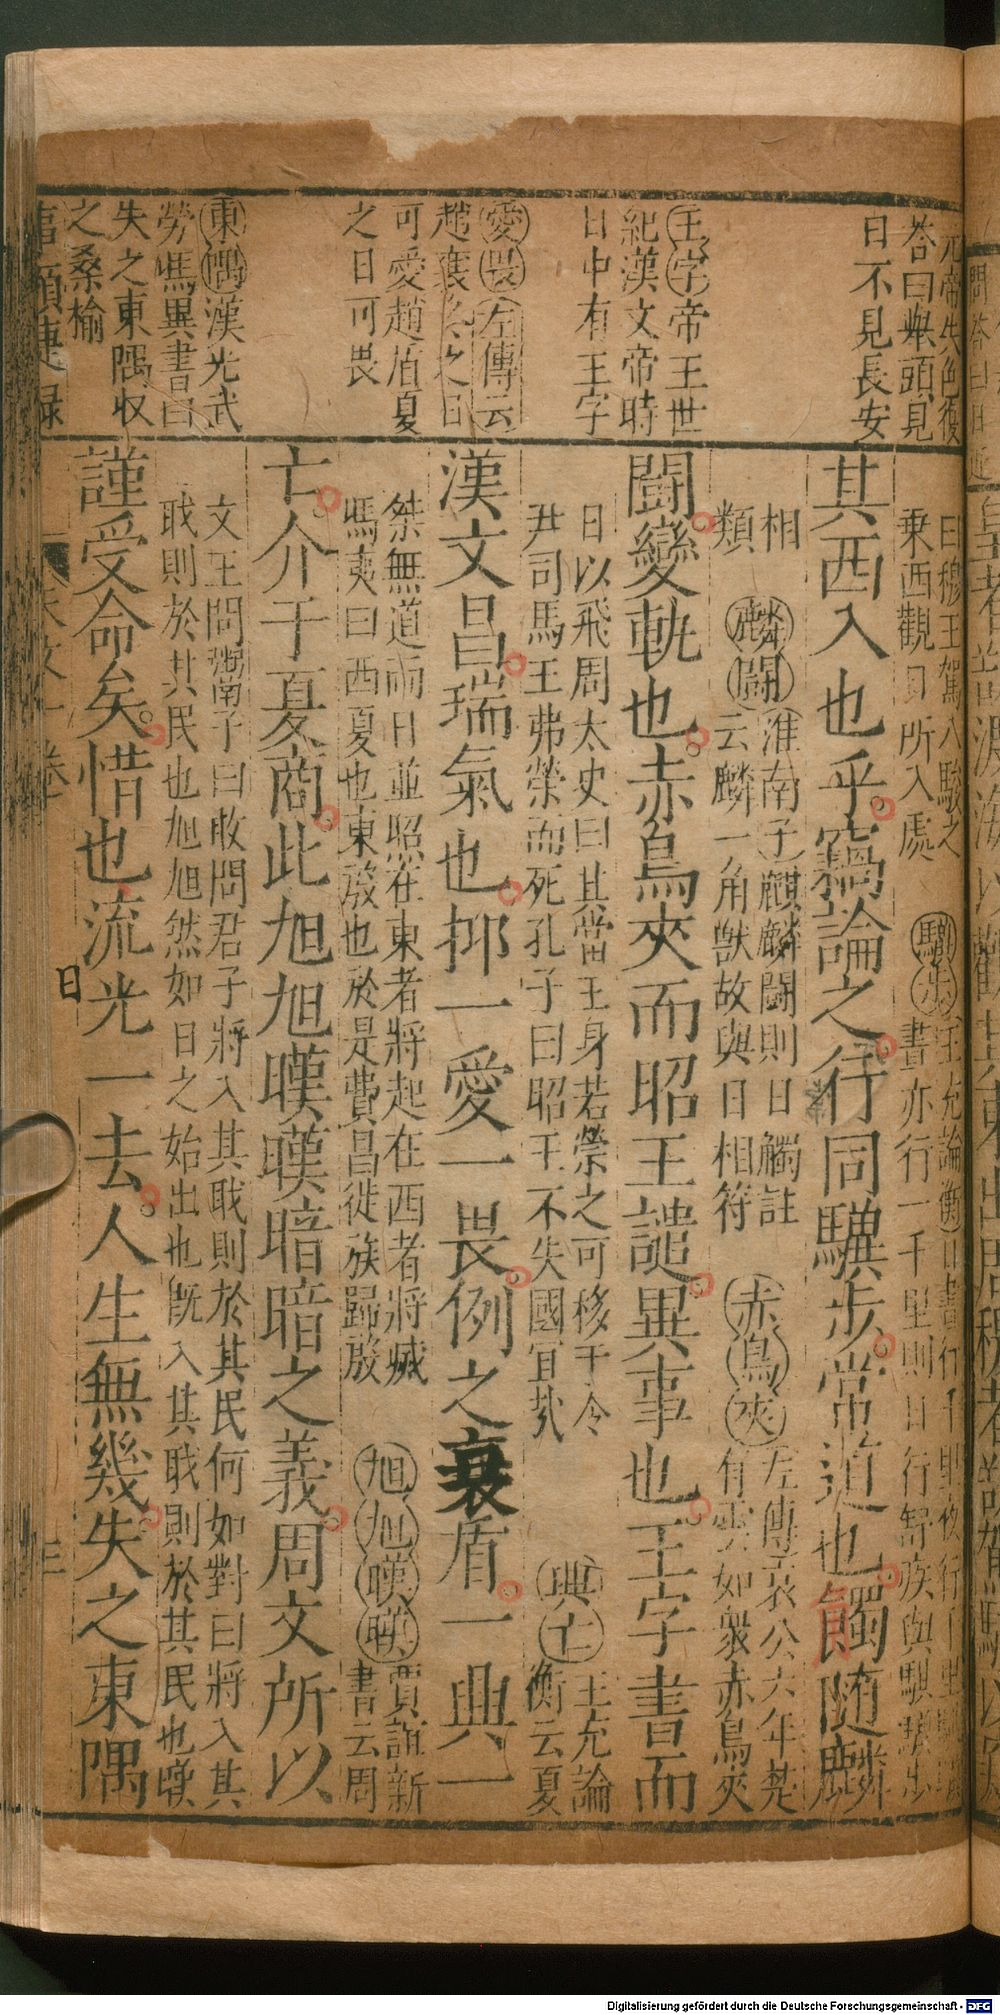 元帝失色復
答曰舉頭見
日不見長安
王字帝王世
紀漢文帝時
日中有王字
愛畏左傳云
趙衰冬之日
可愛趙盾夏
之日可畏
東隅漢光武
勞馮異書曰
失之東隅収
之桑榆
曰穆王駕八駿之
乘西觀日所入處
驥步王充論衡日晝行千里夜行千里
晝亦行一千里則日行舒疾與騏驥步
其西入也乎竊論之行同驥步常道也觸随麟
相
類
麟鬪淮南子麒麟鬪則日觸註
云麟一角獸故與日相符
赤烏夾左傳哀公六年楚
有雲如衆赤烏夾
闘變軌也赤烏夾而昭王譴異事也王字書而
日以飛周太史曰其當王身若禜之可移于令
尹司馬王弗禜而死孔子曰昭王不失國宜㢤
典亡王充論
衡云夏
漢文昌瑞氣也抑一愛一畏例之衰盾一典一
桀無道两日並照在東者將起在西者將滅
馮夷曰西夏也東殷也於是費昌徙族歸殷
旭旭暵暵賈誼新
書云周
亡介于夏商此旭旭暵暵暗暗之義周文所以
文王問鬻子曰敢問君子將入其職則於其民何如對曰將入其
職則於其民也旭旭然如日之始出也既入其職則於其民也暵
謹受命矣惜也流光一去人生無幾失之東隅
日
事類捷録
天文一卷
三
飠
Digitalisierung gefördert durch die Deutsche Forschungsgemeinschaft - DFG